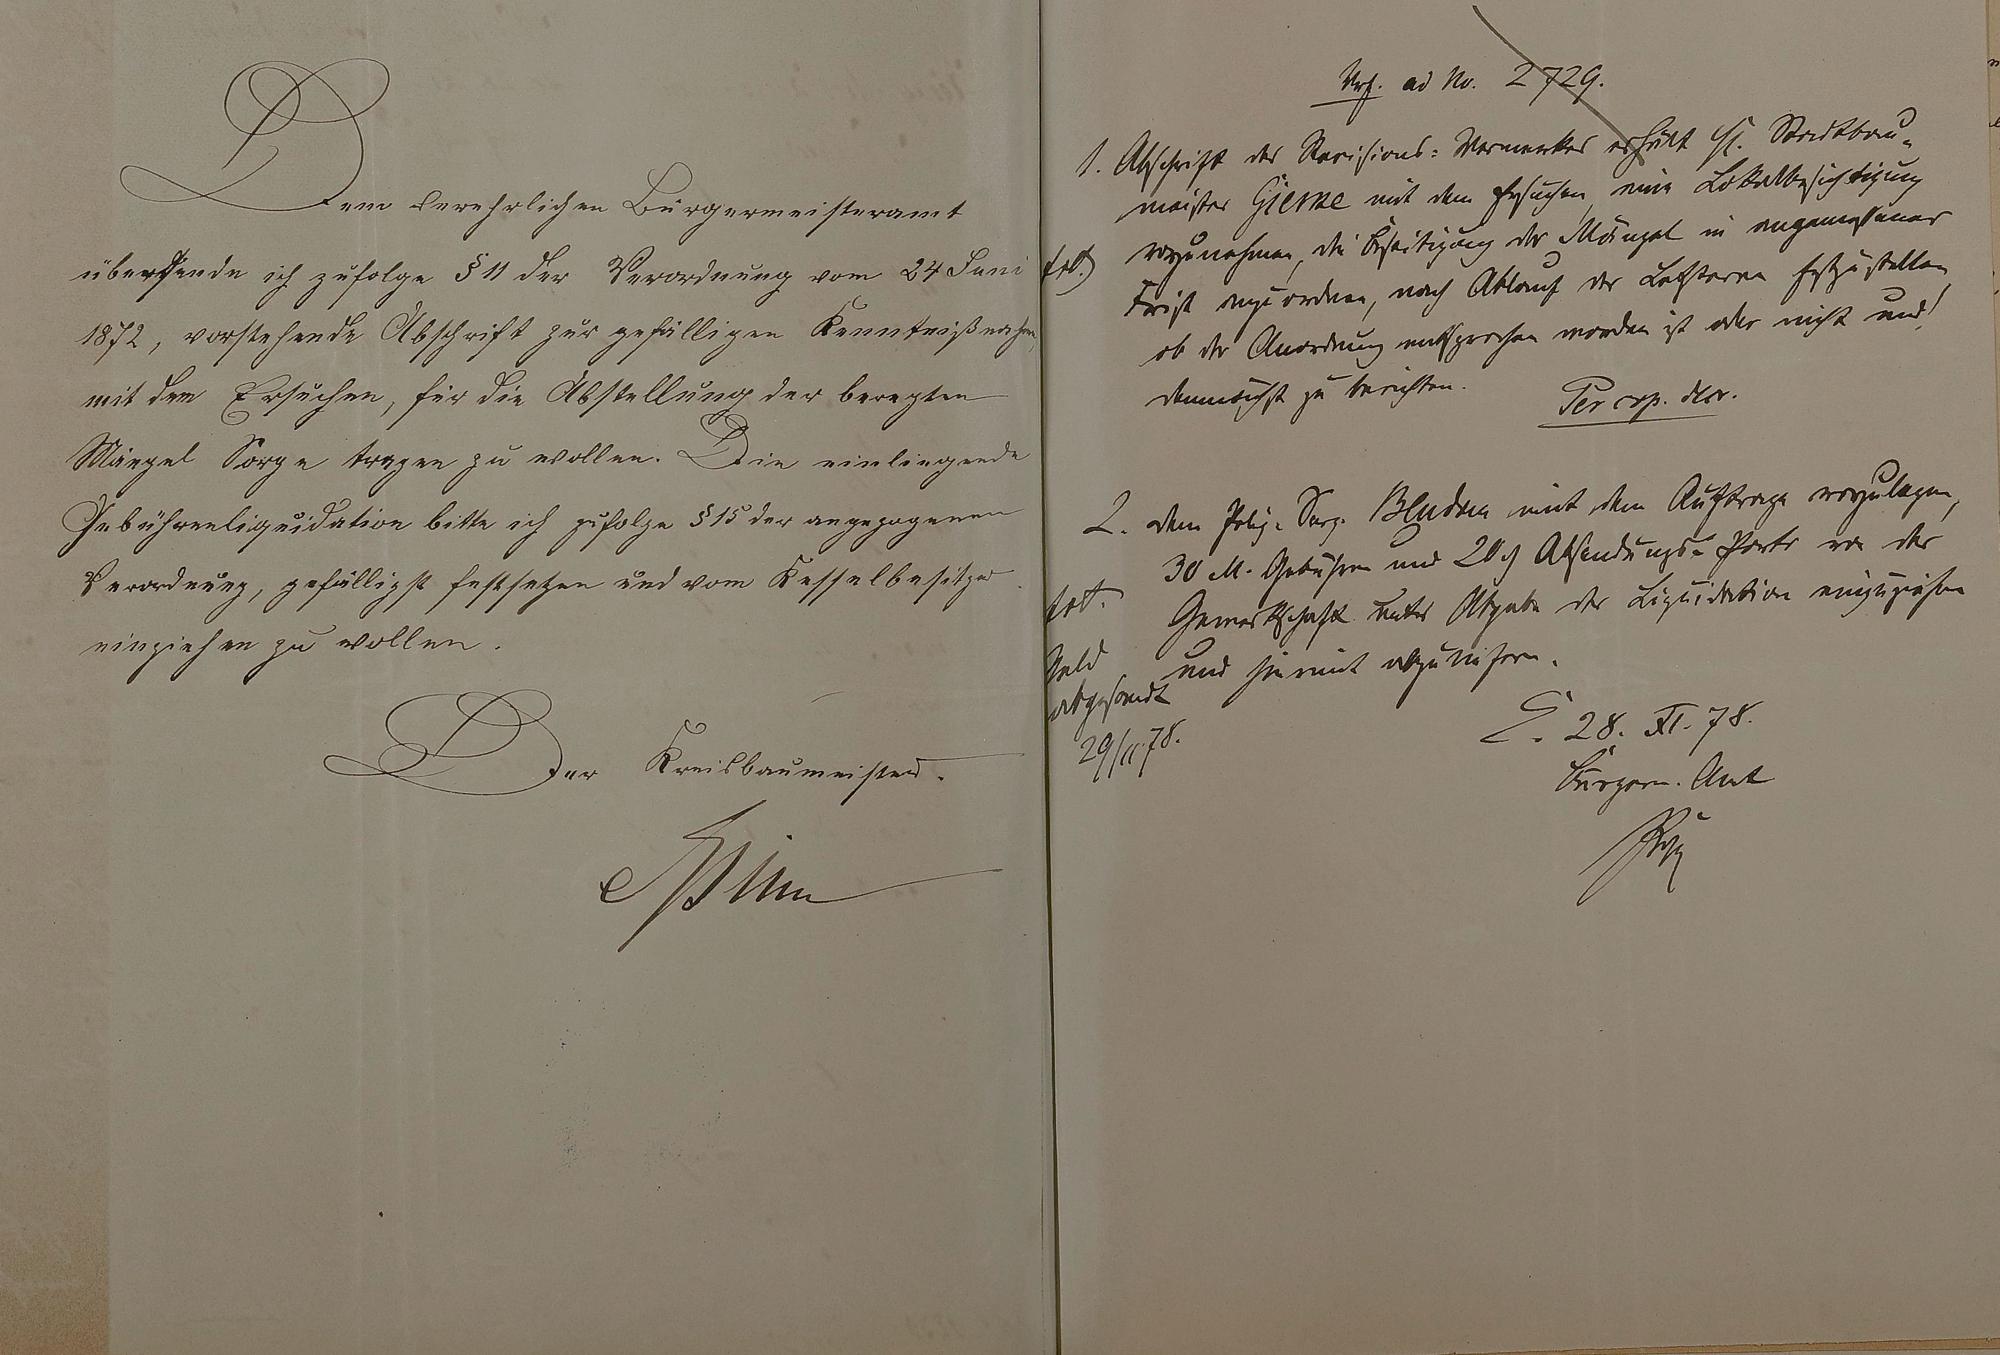 Dem verehrlichen Bürgermeisteramt
übersende ich zufolge § 11 der Verordnung vom 24 Juni
1872, vorstehende Abschrift zur gefälligen Kenntnißnahme,
mit dem Ersuchen, für die Abstellung der beregten
Mängel Sorge tragen zu wollen. Die einliegende
Gebührenliquidation bitte ich zufolge § 15 der angezogenen
Verordnung, gefälligst festsetzen und vom Kesselbesitzer
einziehen zu wollen.
Der Kreisbaumeister.
Vrf. ad No. 2729.
1. Abschrift des Revisions-Vermerkes erhält H. Stadtbau-
meister Gierke mit dem Ersuchen, eine Lokalbesichtigung
vorzunehmen, die Beseitigung der Mängel in angemessener
Frist anzuordnen, nach Ablauf der Letzteren festzustellen,
ob der Anordnung entsprochen worden ist oder nicht und
demnächst zu berichten.
Per cop. decr.
2. dem Poliz. Serg. mit dem Auftrage vorzulegen,
30 M. Gebühren und 20 ₰ Absendungs-Porto von der
Gewerkschaft unter Abgabe der Liquidation einzuziehen
und hiermit abzuliefern.
E. 28. XI. 78.
Bürgerm. Amt
fct.
fct.
Geld
abgesandt
29/11 78.